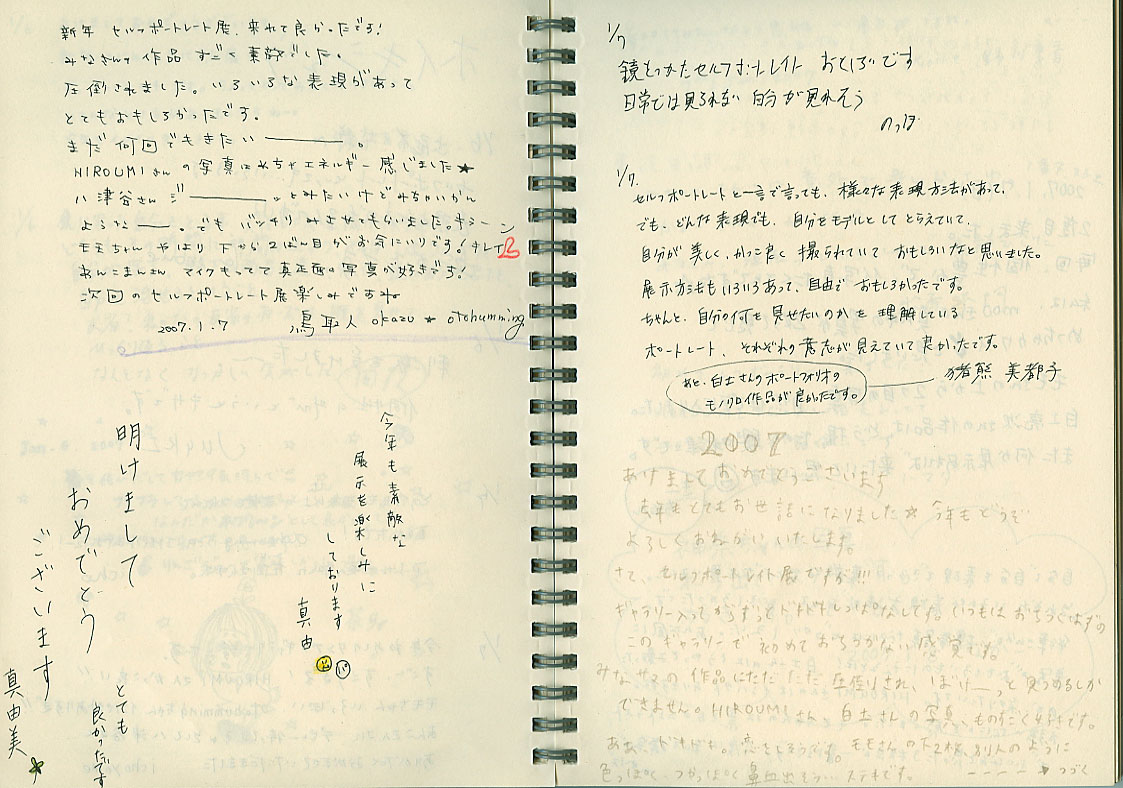 新年 セルフポートレート展、来れて良かったです!
みなさんの作品 すごく素敵でした。
圧倒されました。いろいろな表現があって
とてもおもしろかったです。
まだ何回でもきたい ―――。
HIROUMIさんの写真はめちゃエネルギー感じました★
八津谷さん ジ―――。とみたいけどみちゃいかん
ような――。でも バッチリみさせてもらいました。キラーン
モモちゃん やはり下から2ばん目がお気にいりです!キレイ
あんこまんさん マイクもってて真正面の写真が好きです!
次回のセルフポートレート展楽しみですね
2007.1.7 鳥取人 okazu ★ otohumming
明けまして
おめでとう
ございます
真由美
今年も素敵な
展示を楽しみに
しております
真由
とても
良かったです
1/7
鏡をつかたセルフポートレイト おもしろいです
日常では見られない 自分が見れそう
のっぽ
1/7.
セルフポートレートと一言で言っても、様々な表現方法があって、
でも、どんな表現でも、自分をモデルとして とらえていて、
自分が美しく、かっこ良く 撮られていて おもしろいなと思いました。
展示方法もいろいろあって、自由で おもしろかったです。
ちゃんと、自分の何を見せたいのかを 理解している
ポートレート、それぞれの意志が見えていて良かったです。
猪熊 美都子
あと、白土さんのポートフォリオの
モノクロ作品が良かったです。
2007
あけましておめでとうございます
去年もとてもお世話になりました★ 今年もどうぞ
よろしくおねがいいたします。
さて、セルフポートレイト展ですが!!!
ギャラリー入ってからずっとドキドキしっぱなしです。いつもはおちつくはずの
このギャラリーで 初めておちつかない感覚です。
みなサマの作品にただただ圧倒され、ぼけーっと見つめるしか
できません。HIROUMIさん、白土さんの写真、ものすごく好きです。
ああ、ドキドキ。恋をしそうです。モモさんの下2枚、別人のように
色っぽく、つやっぽく 鼻血出そう… ステキです。 ーーーー ★つづく